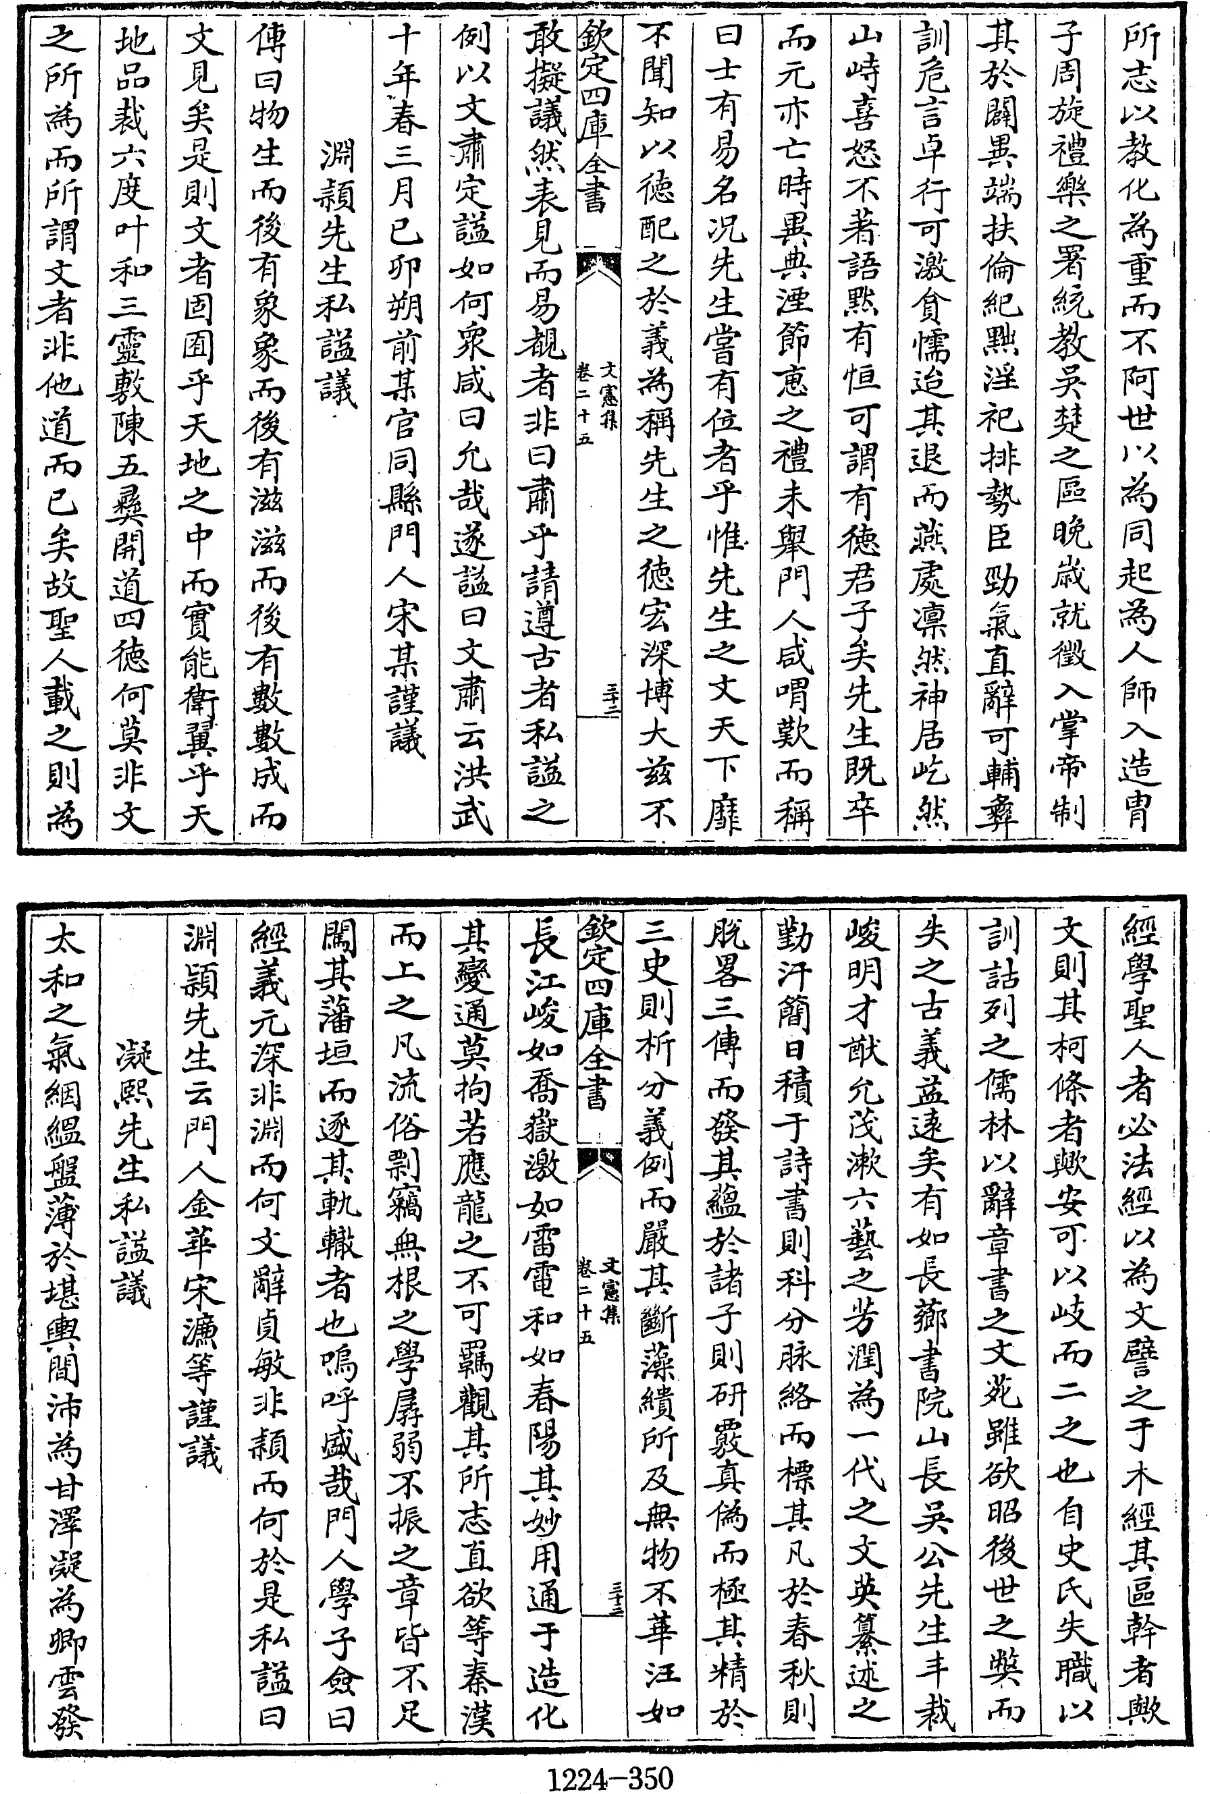 所志以教化為重而不阿世以為同起為人師入造胄
子周旋禮樂之署統教吳楚之區晚歲就徵入掌帝制
其於闢異端扶倫紀黜淫祀排勢臣勁氣直辭可輔彛
訓危言卓行可激貪懦迨其退而燕處凛然神居屹然
山峙喜怒不著語黙有恒可謂有徳君子矣先生既卒
而元亦亡時異典湮節惠之禮未舉門人咸喟歎而稱
曰士有易名况先生嘗有位者乎惟先生之文天下靡
不聞知以徳配之於義為稱先生之徳宏深博大兹不
欽定四庫全書
文憲集
卷二十五
三十二
敢擬議然表見而易覩者非曰肅乎請遵古者私諡之
例以文肅定諡如何衆咸曰允哉遂諡曰文肅云洪武
十年春三月已卯朔前某官同縣門人宋某謹議
淵穎先生私諡議
傳曰物生而後有象象而後有滋滋而後有數數成而
文見矣是則文者固囿乎天地之中而實能衛翼乎天
地品裁六度叶和三靈敷陳五彛開道四徳何莫非文
之所為而所謂文者非他道而已矣故聖人載之則為
經學聖人者必法經以為文譬之于木經其區幹者歟
文則其柯條者歟安可以岐而二之也自史氏失職以
訓詁列之儒林以辭章書之文苑雖欲昭後世之獘而
失之古義益逺矣有如長薌書院山長吳公先生丰裁
峻明才猷允茂漱六藝之芳潤為一代之文英纂述之
勤汗簡日積于詩書則科分脉絡而標其凡於春秋則
脱畧三傳而發其藴於諸子則研覈真偽而極其精於
三史則析分義例而嚴其斷藻繢所及無物不華汪如
欽定四庫全書
文憲集
卷二十五
三十三
長江峻如喬嶽激如雷電和如春陽其妙用通于造化
其變通莫拘若應龍之不可羈觀其所志直欲等秦漢
而上之凡流俗剽竊無根之學孱弱不振之章皆不足
闖其藩垣而逐其軌轍者也嗚呼盛哉門人學子僉曰
經義元深非淵而何文辭貞敏非穎而何於是私諡曰
淵穎先生云門人金華宋濂等謹議
凝熙先生私諡議
太和之氣絪緼盤薄於堪輿間沛為甘澤凝為卿雲發
1224-350